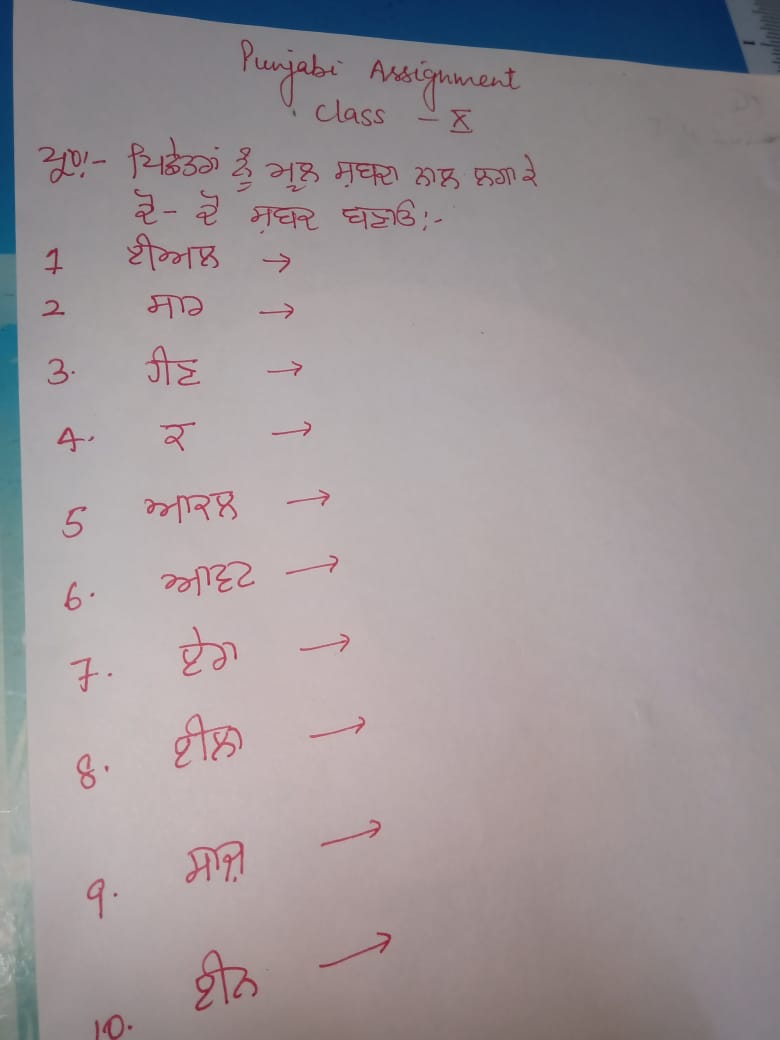 Punjabi Assignment
Class - X
ਪ੍ਰਸ਼:- ਪਿਛੇਤਰਾਂ ਨੂੰ ਮੂਲ ਸ਼ਬਦਾਂ ਨਾਲ ਲਗਾ ਕੇ
ਦੋ - ਦੋ ਸ਼ਬਦ ਬਣਾਓ:-
1 ਈਅਲ →
2 ਸਾਰ →
3. ਹੀਣ →
4. ਕ →
5 ਆਕਲ →
6. ਆਵਟ →
7. ਏਰਾ →
8. ਈਲਾ →
9. ਸਾਜ਼ →
10. ਈਨ →